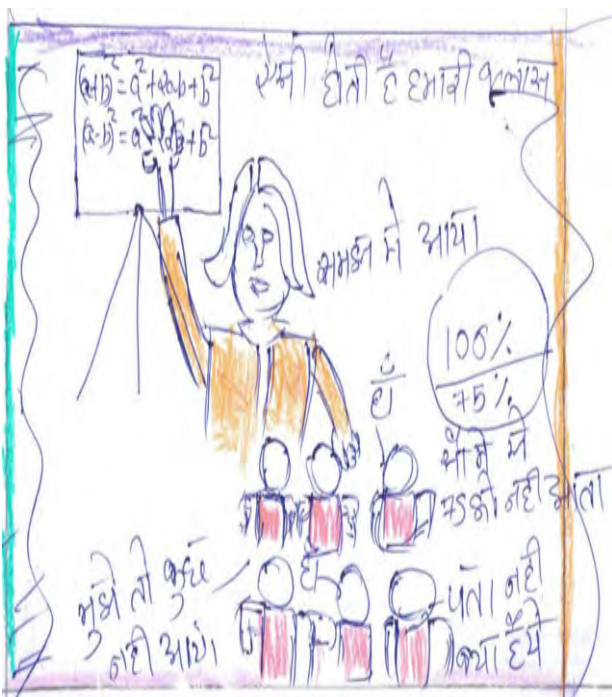 (a+b)² = a² + 2ab + b²
(a-b)² = a² - 2ab + b²
ऐसी होती है हमारी क्लास
समझ में आया
हाँ
100%
75%
सौ में से
75 को नहीं आता
मुझे तो कुछ
नहीं आया
पता नहीं
क्या है ये